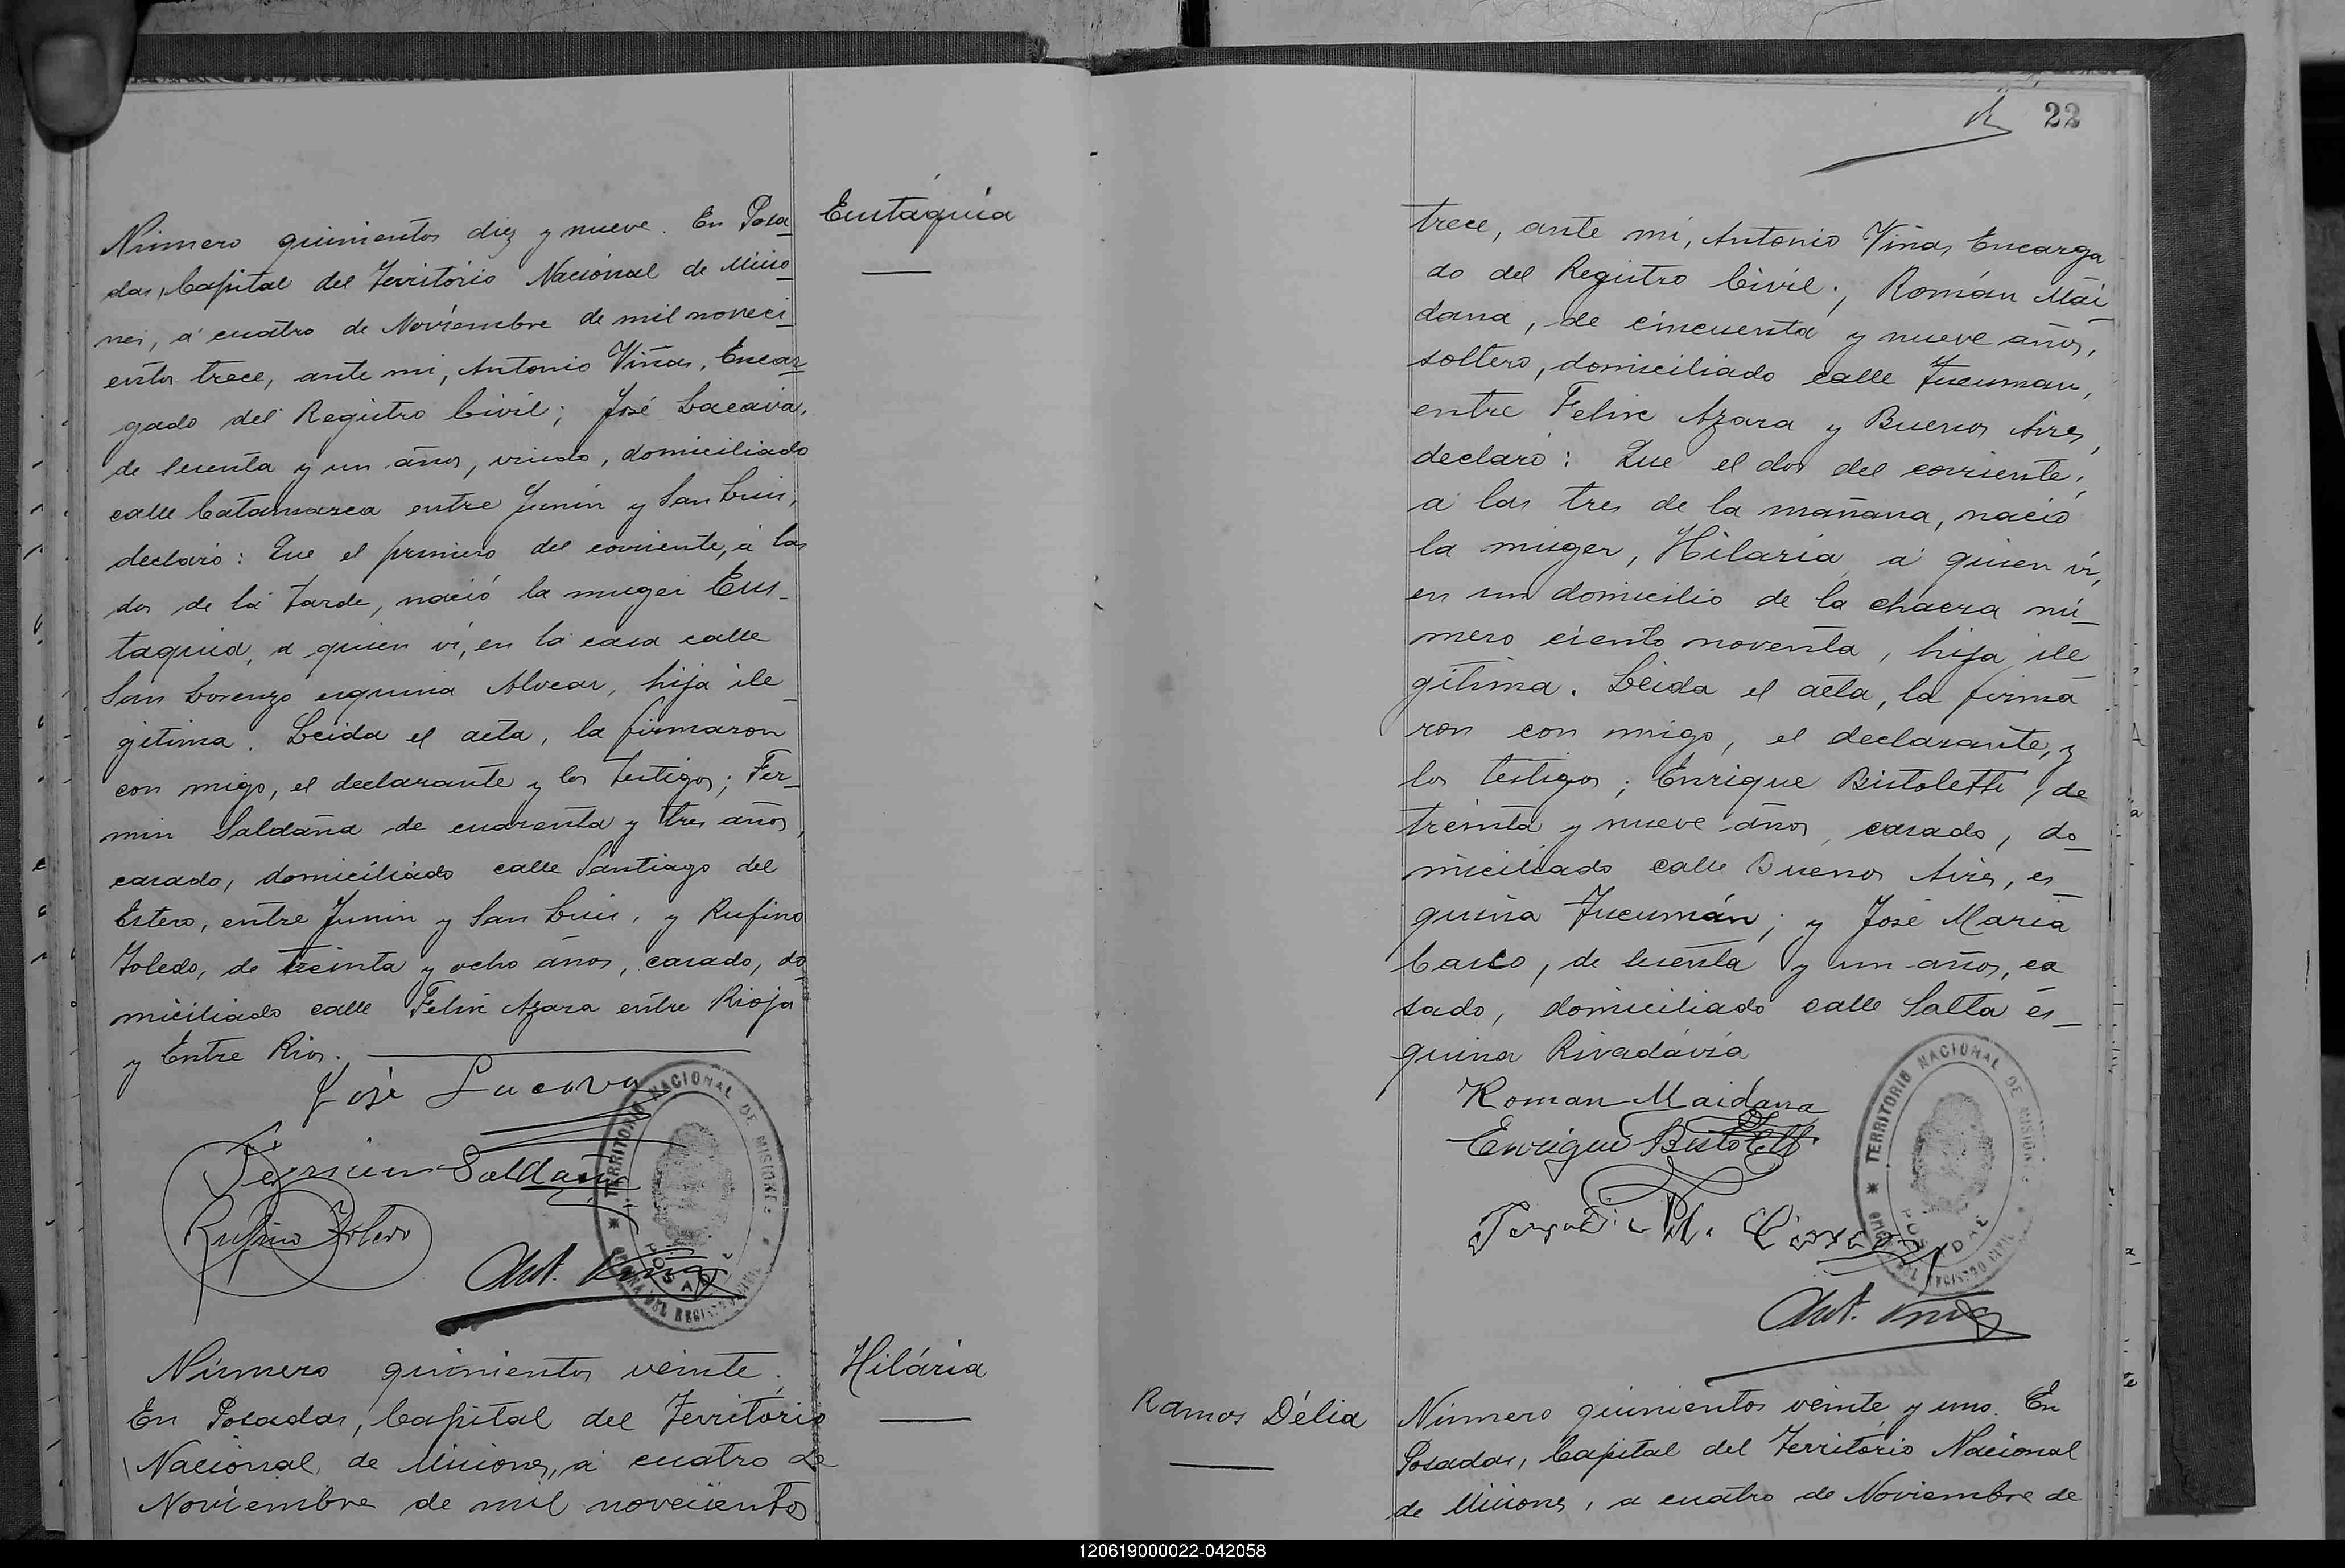 Número quinientos diez y nueve. En Posa
das, Capital del Território Nacional de Misio
nes, á cuatro de Noviembre de mil noveci
entos trece, ante mi, Antonio Viñas, Encar
gado del Registro Civil; José Lacava,
de sesenta y un años, viudo, domiciliado
calle Catamarca entre Junín y San Luis,
declaró: Que el primero del corriente, á las
dos de la tarde, nació la muger Eus-
taquia, a quien ví, en la casa calle
San Lorenzo esquina Alvear, hija ile
gitima. Leida el acta, la firmaron
con migo, el declarante y los testigos; Fer-
min Saldaña de cuarenta y tres años,
casado, domiciliado calle Santiago del
Estero, entre Junin y San Luis, y Rufino
Toledo, de treinta y ocho años, casado, do
miciliado calle Felix Azara entre Rioja
y Entre Rios.
José Lacava
Fermin Saldaña
Rufino Toledo
Ant. Viñas
TERRITORIO NACIONAL DE MISIONES
POSADAS
OFICINA DEL REGISTRO CIVIL
Eustáquia
Número quinientos veinte.
En Posadas, Capital del Território
Nacional de Misiones, á cuatro de
Noviembre de mil novecientos
Hilária
22
trece, ante mi, Antonio Viñas Encarga
do del Registro Civil; Román Mai
dana, de cincuenta y nueve años,
soltero, domiciliado calle Tucuman,
entre Felix Azara y Buenos Aires,
declaró: Que el dos del corriente,
a las tres de la mañana, nació
la muger, Hilaria, á quien ví,
en un domicilio de la chacra nú
mero ciento noventa, hija ile
gitima. Leida el acta, la firma
ron con migo, el declarante, y
los testigos; Enrique Bistoletti, de
treinta y nueve años, casado, do
miciliado calle Buenos Aires, es
quina Tucumán; y José Maria
de sesenta y un años, ca
sado, domiciliado calle Salta es-
quina Rivadávia
Roman Maidana
Enrique Bistoletti
Ant. Viñas
TERRITORIO NACIONAL DE MISIONES
POSADAS
OFICINA DEL REGISTRO CIVIL
Ramos Délia
Número quinientos veinte y uno. En
Posadas, Capital del Território Nacional
de Misiones, a cuatro de Noviembre de
120619000022-042058